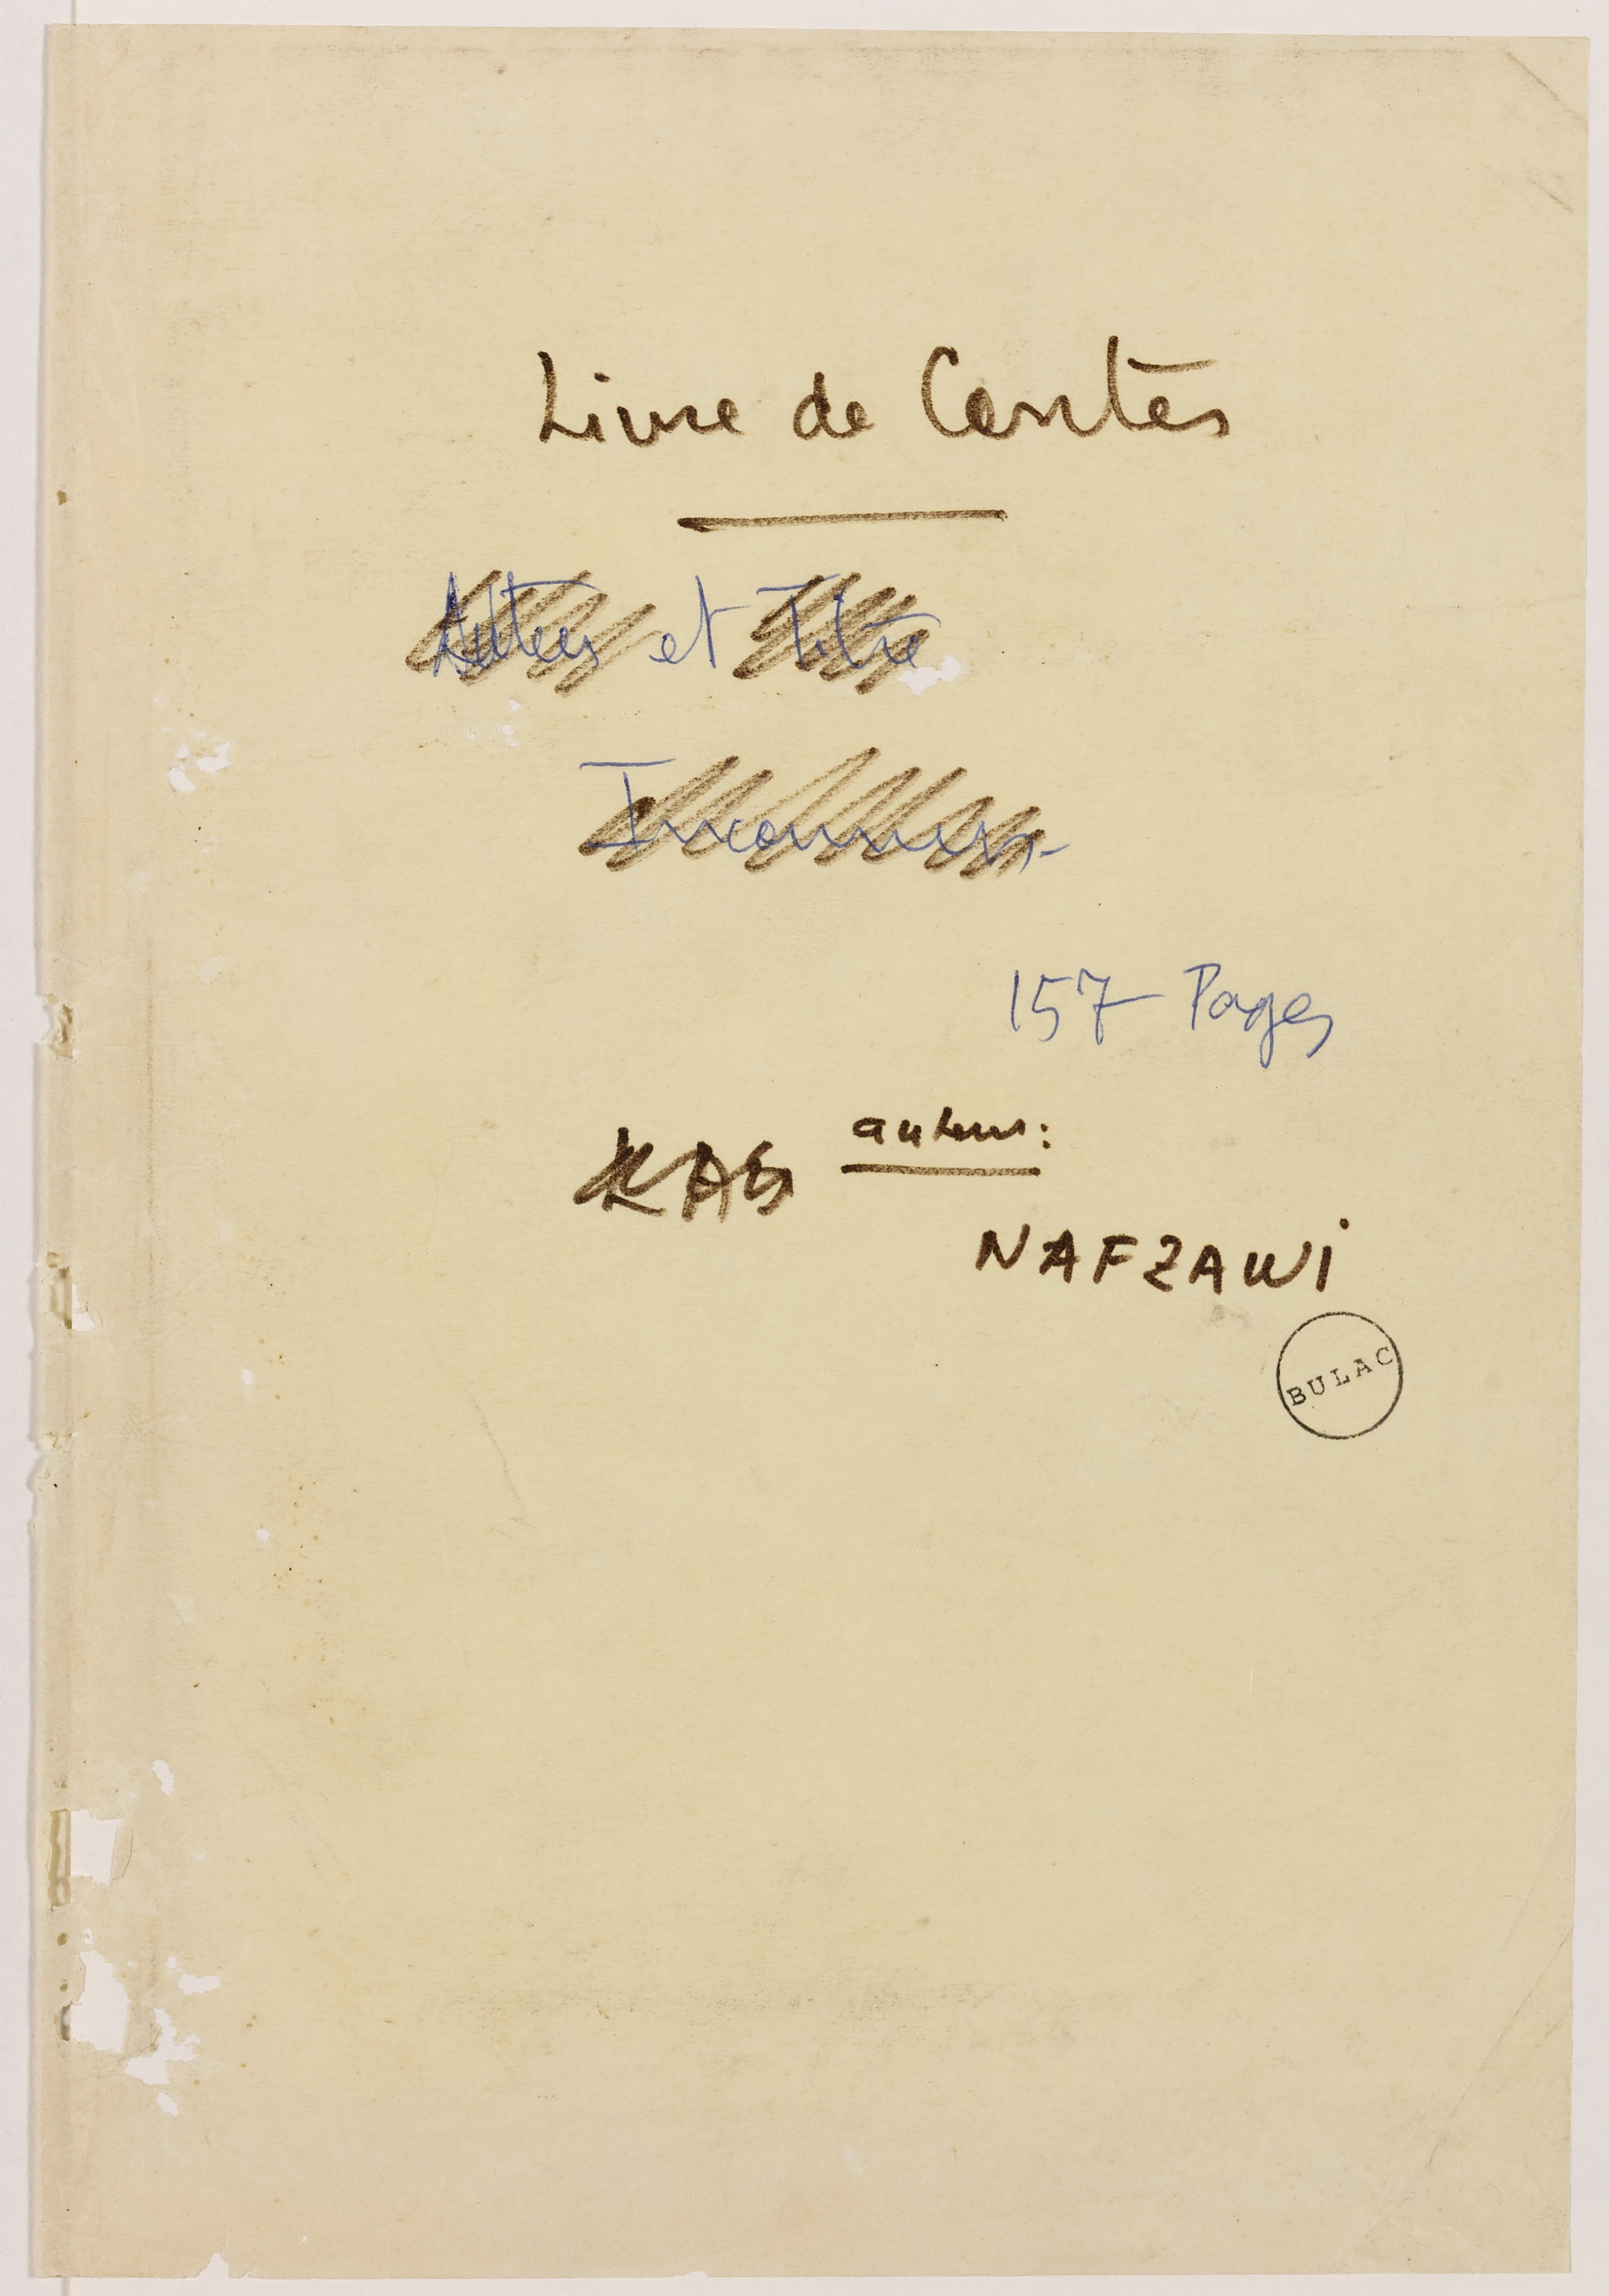 Livre de Contes
Auteur et Titre
Inconnus-
157 Pages
auteur:
NAFZAWI
BULAC